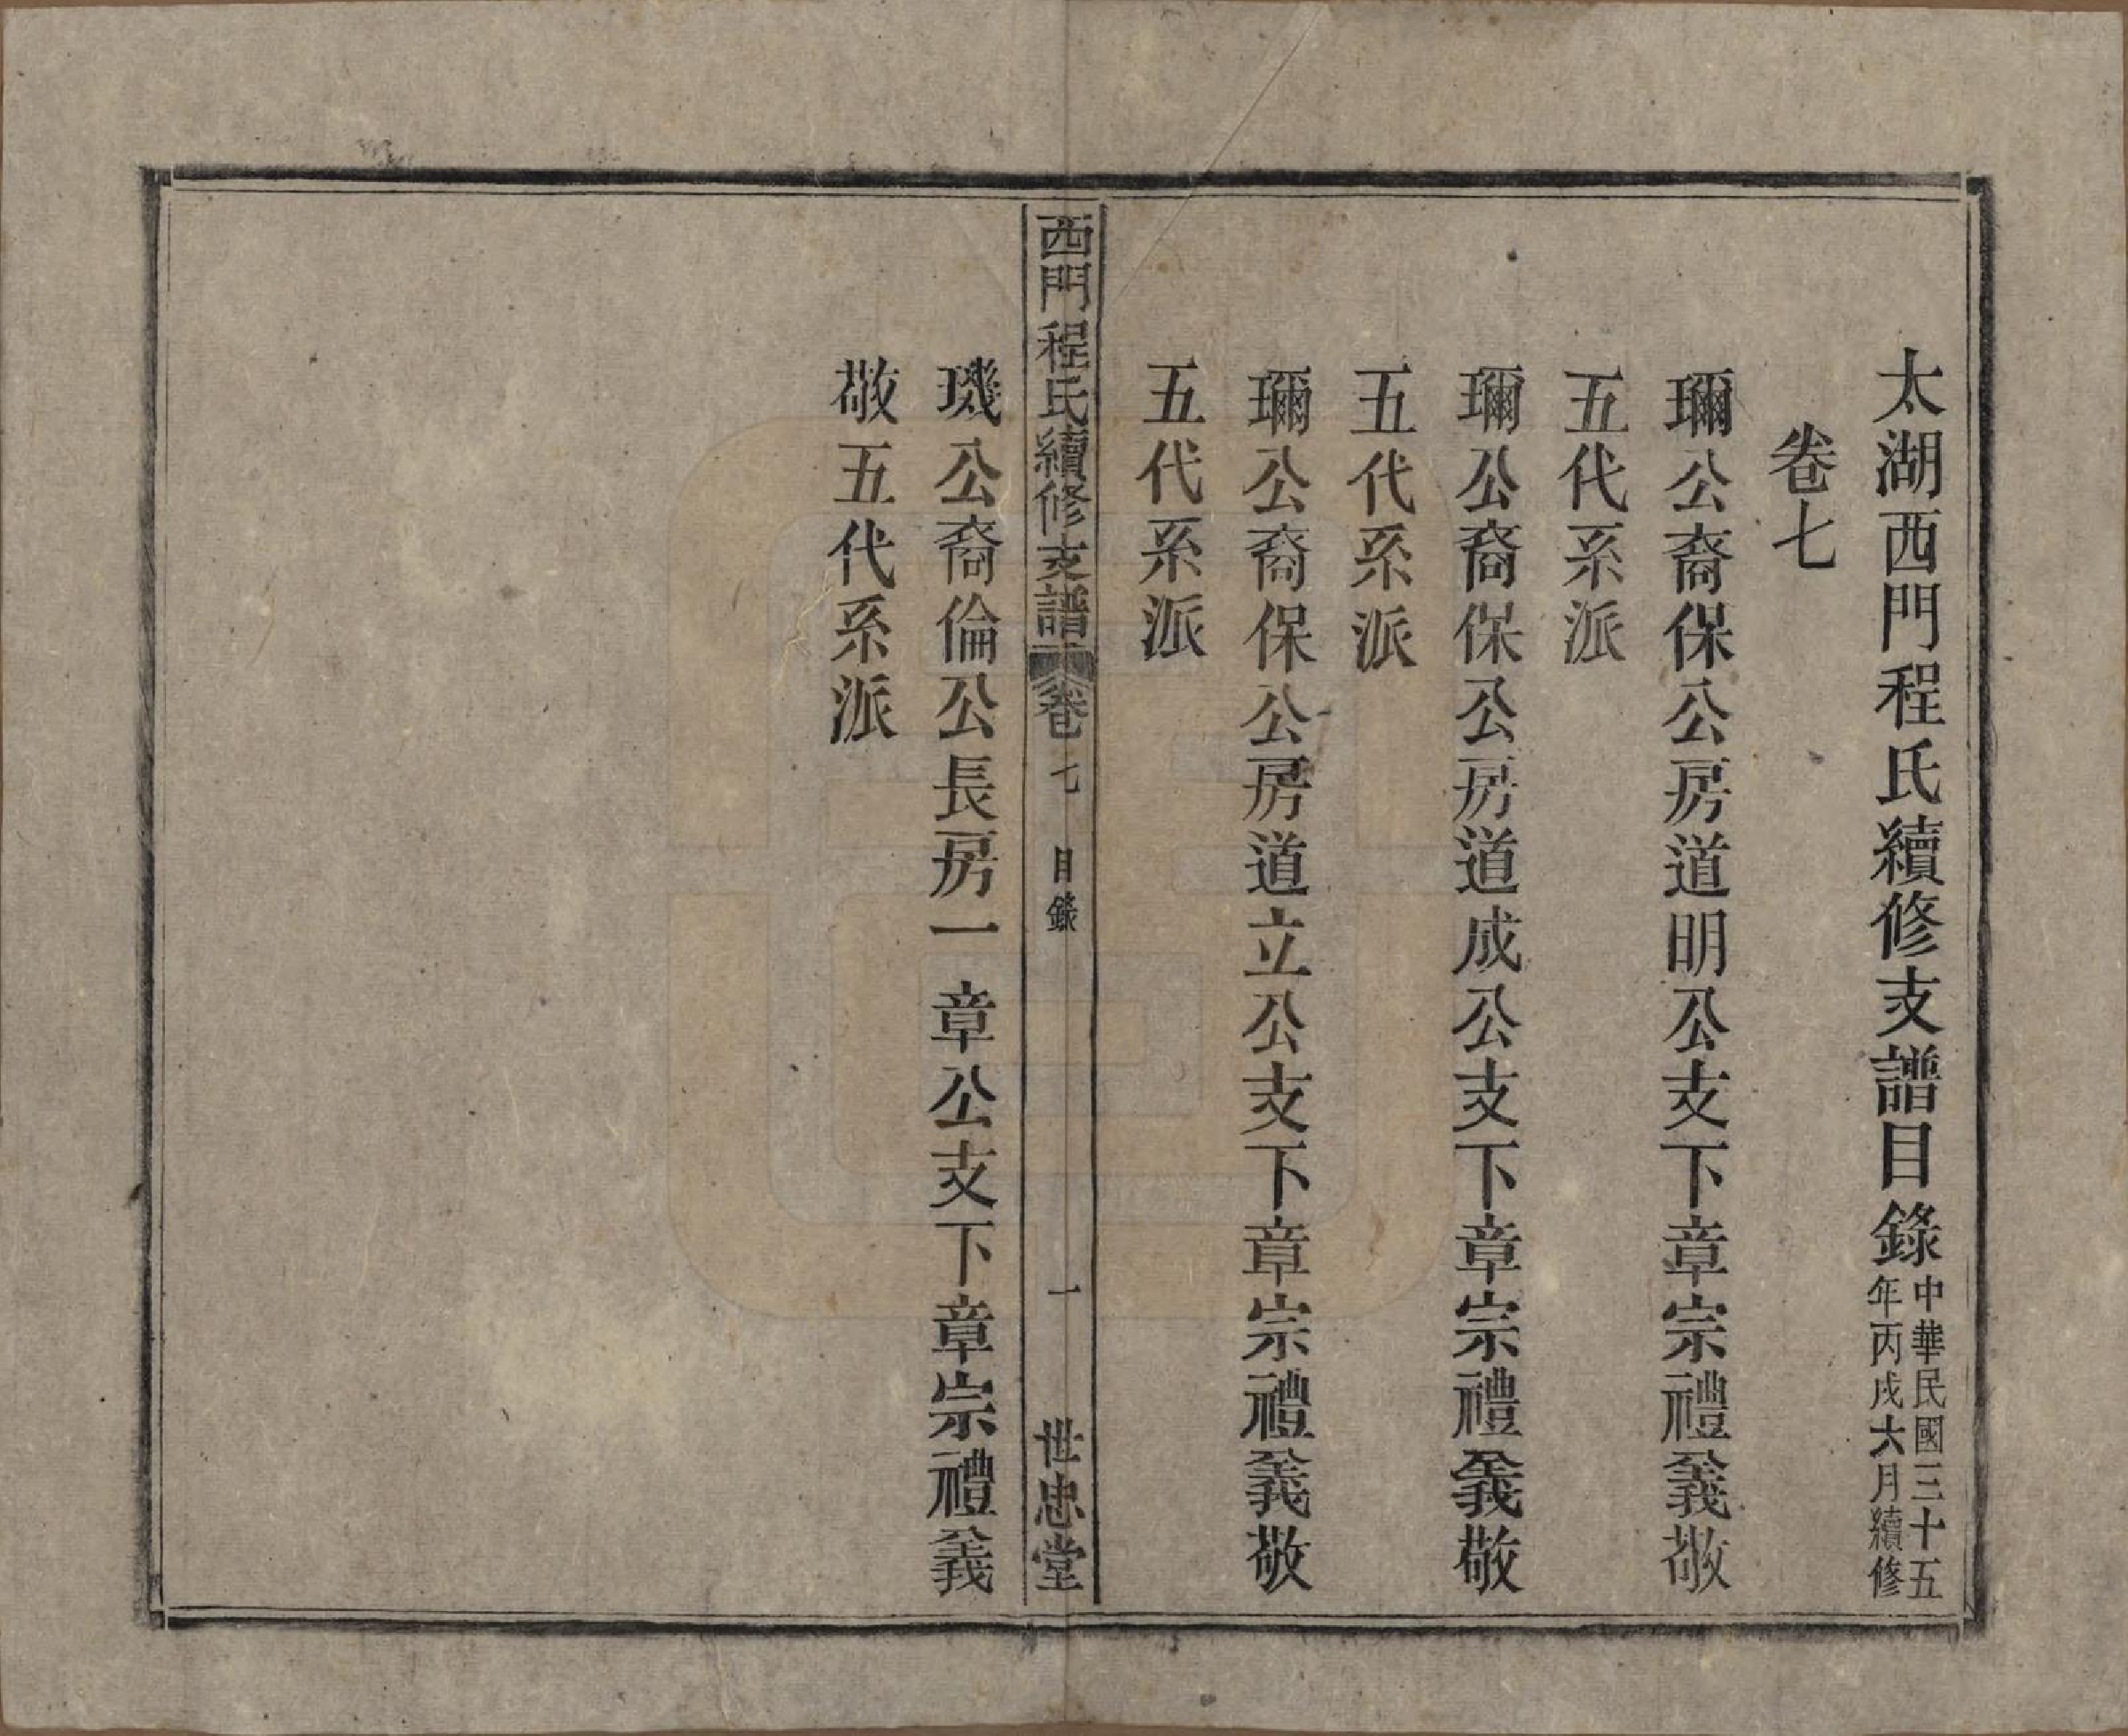 太湖西門程氏續修支譜目錄
中華民國三十五
年丙戌六月續修
卷七
瓓公裔保公房道明公支下章宗禮義敬
五代系派
瓓公裔保公房道成公支下章宗禮義敬
五代系派
瓓公裔保公房道立公支下章宗禮義敬
五代系派
西門程氏續修支譜 卷七 目錄 一 世忠堂
璣公裔倫公長房一章公支下章宗禮義
敬五代系派